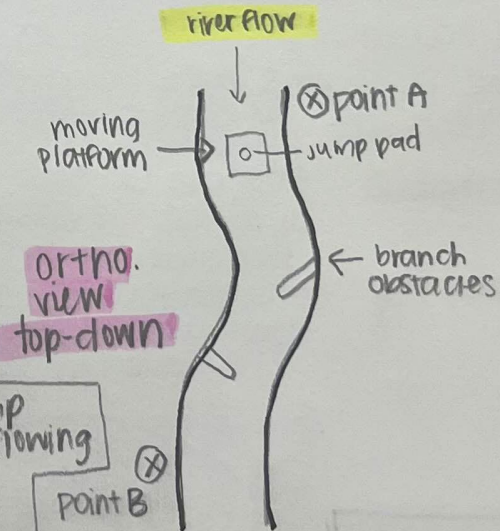 river flow
point A
moving
platform
jump pad
branch
obstacles
ortho.
view
top-down
point B